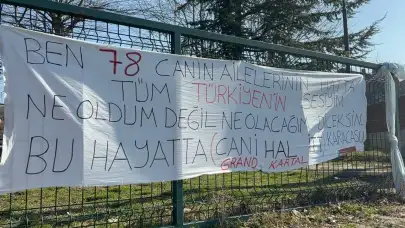 BEN 78 CANIN AİLELERİNİN
TÜM TÜRKİYENİN SESİYİM
NE OLDUM DEĞİL NE OLACAĞIM
BU HAYATTA (CANİ HAL
GRAND KARTAL